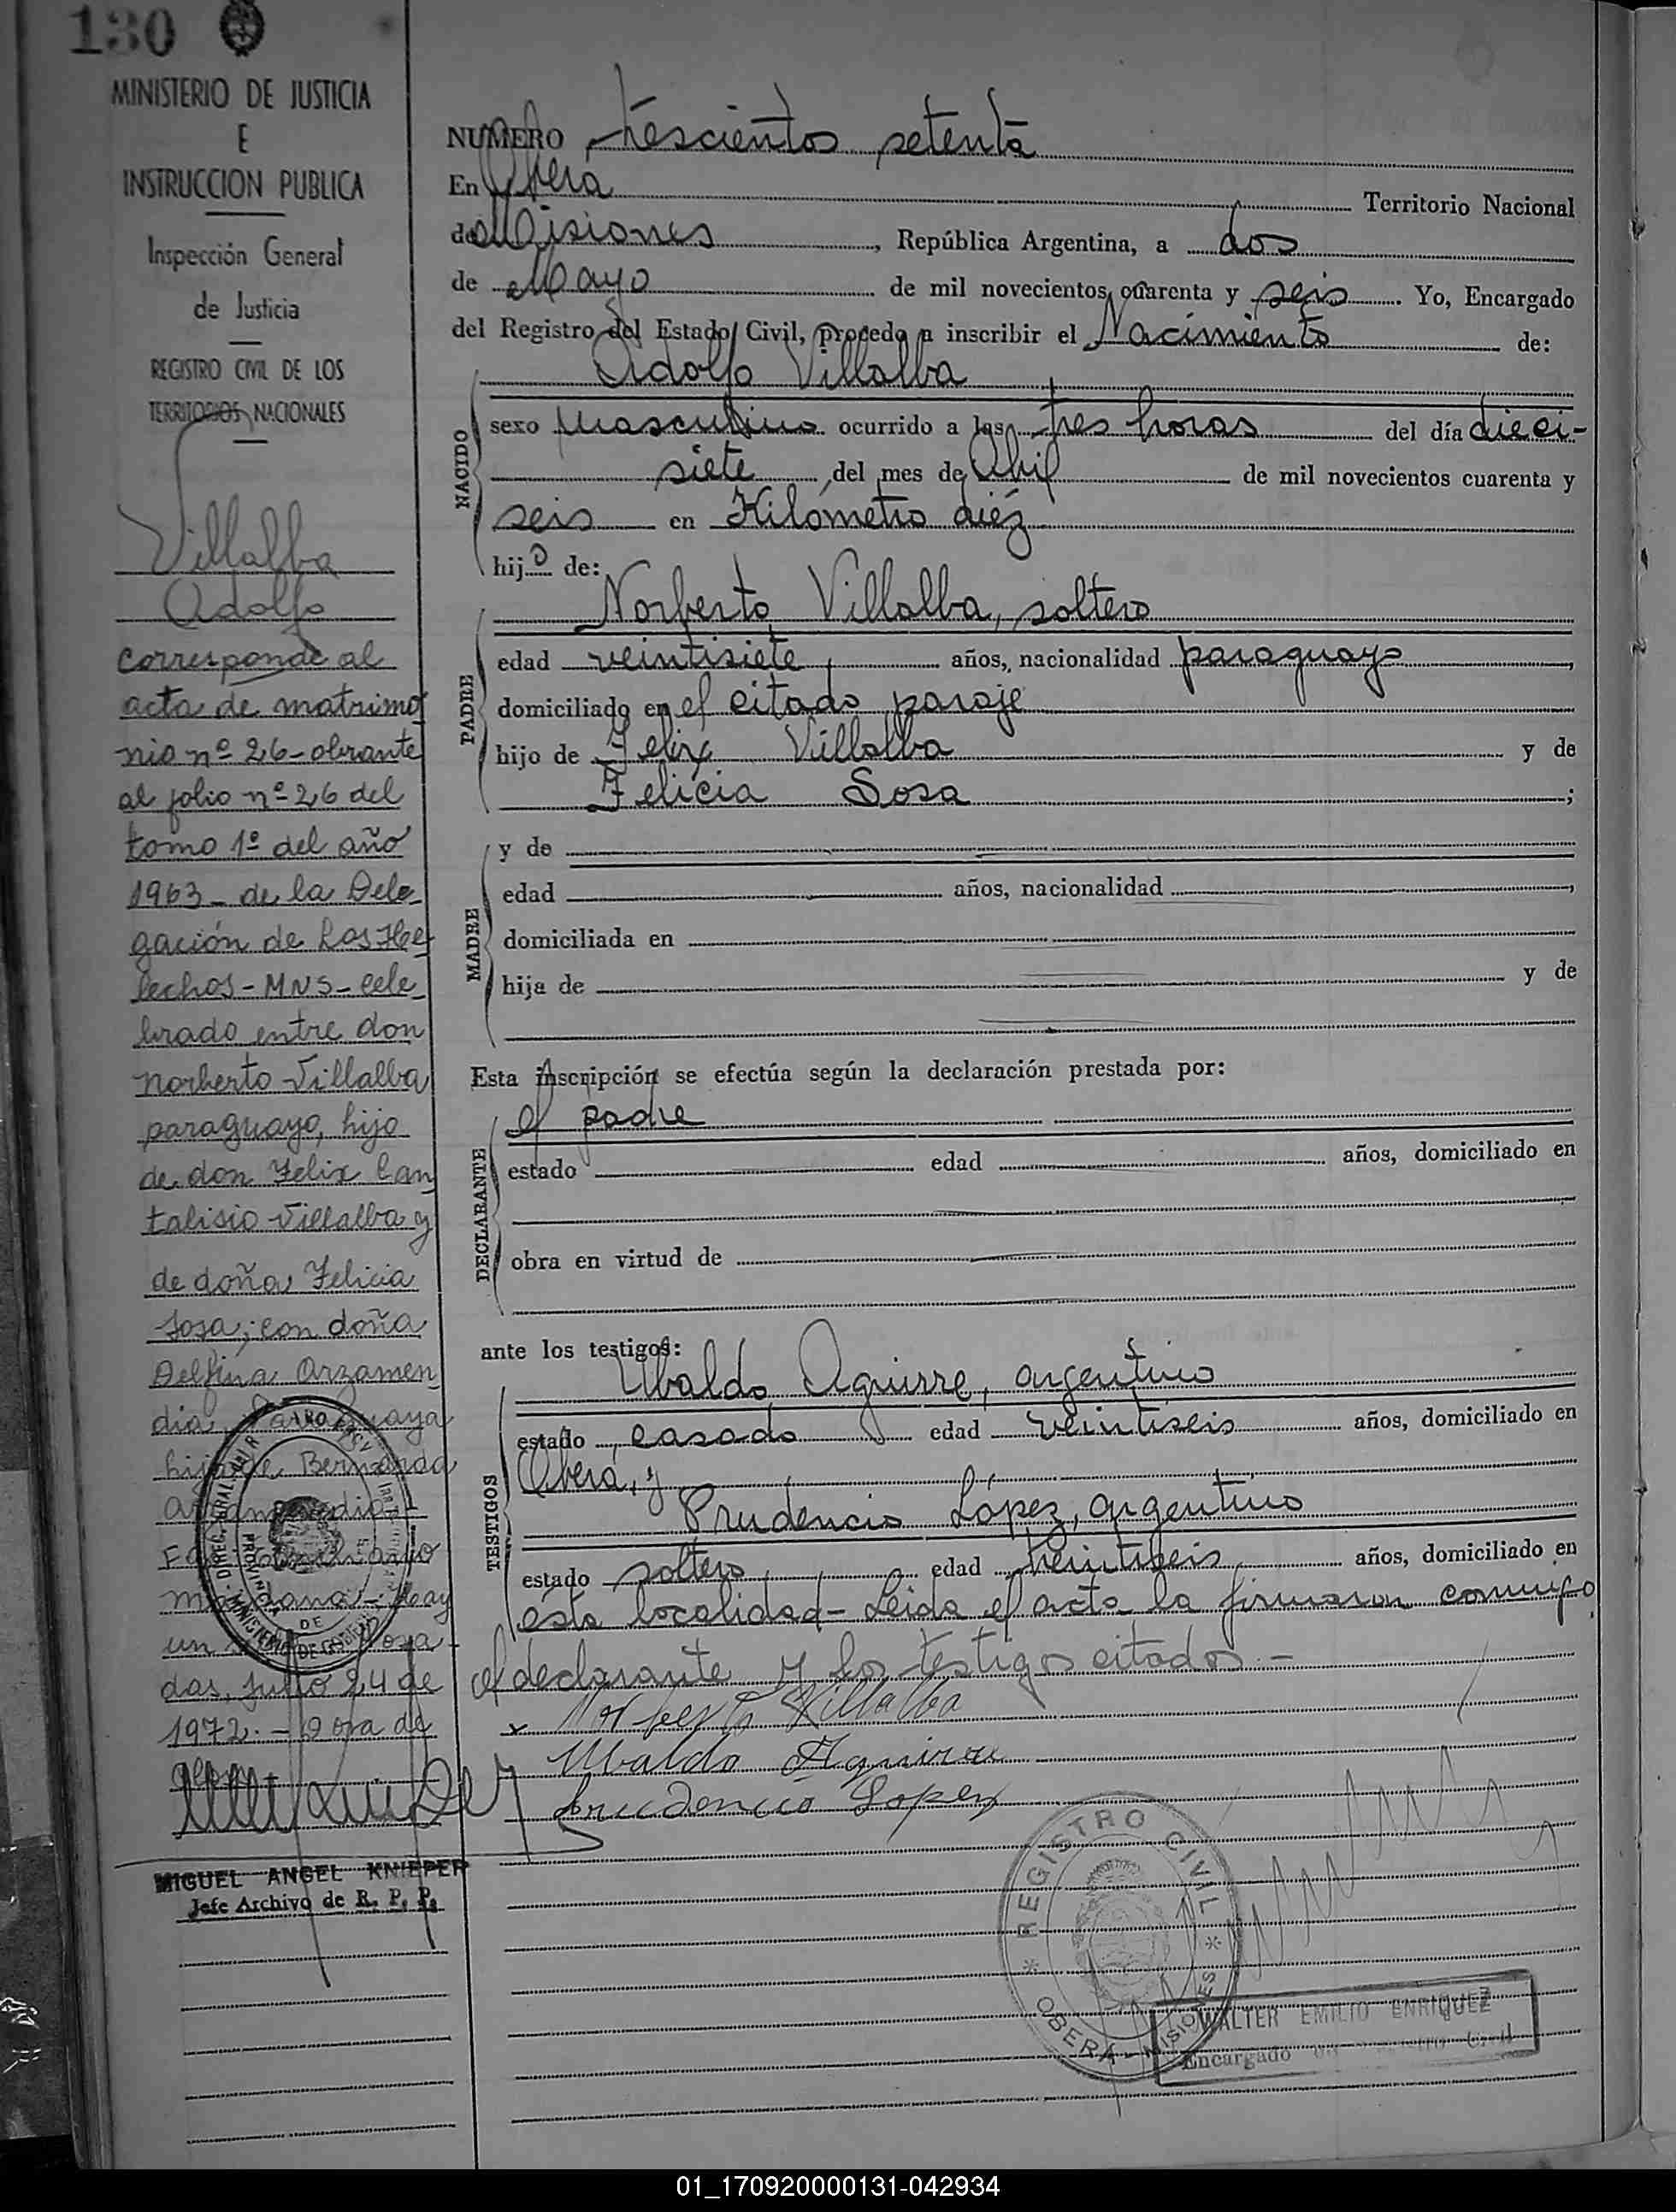 130
MINISTERIO DE JUSTICIA
E
INSTRUCCION PUBLICA
Inspección General
de Justicia
REGISTRO CIVIL DE LOS
TERRITORIOS NACIONALES
Villalba
Adolfo
Corresponde al
acta de matrimo
nio nº 26 - obrante
al folio nº 26 del
tomo 1º del año
1963 - de la Dele
gación de Los He
lechos - MNS - cele
brado entre don
Norberto Villalba
paraguayo, hijo
de don Felix Can
talisio Villalba y
de doña Felicia
Sosa; con doña
Delfina Arzamen
dia, Paraguaya
hija de Bernarda
Arzamendia -
un
das, Julio 24 de
1972. -
MIGUEL ANGEL KNIEPER
Jefe Archivo de R. P. P.
NUMERO trescientos setenta
En Oberá Territorio Nacional
de Misiones, República Argentina, a dos
de Mayo de mil novecientos cuarenta y seis. Yo, Encargado
del Registro del Estado Civil, procedo a inscribir el Nacimiento de:
Adolfo Villalba
NACIDO
sexo masculino ocurrido a las tres horas del día dieci-
siete, del mes de Abril de mil novecientos cuarenta y
seis en Kilómetro diéz
hijo de:
PADRE
Norberto Villalba, soltero
edad veintisiete, años, nacionalidad paraguayo,
domiciliado en el citado paraje
hijo de Felix Villalba y de
Felicia Sosa;
MADRE
y de
edad años, nacionalidad ,
domiciliada en
hija de y de
Esta inscripción se efectúa según la declaración prestada por:
DECLARANTE
el padre
estado edad años, domiciliado en
obra en virtud de
ante los testigos:
TESTIGOS
Ubaldo Aguirre, argentino
estado casado edad veintiseis años, domiciliado en
Oberá, y
Prudencio López, argentino
estado soltero, edad veintiseis, años, domiciliado en
ésta localidad - Leída el acta la firmaron conmigo
el declarante y los testigos citados. -
x Norberto Villalba
Ubaldo Aguirre
Prudencio Lopez
REGISTRO CIVIL
OBERA - MISIONES
WALTER EMILIO ENRIQUEZ
Encargado del Registro Civil
01_170920000131-042934